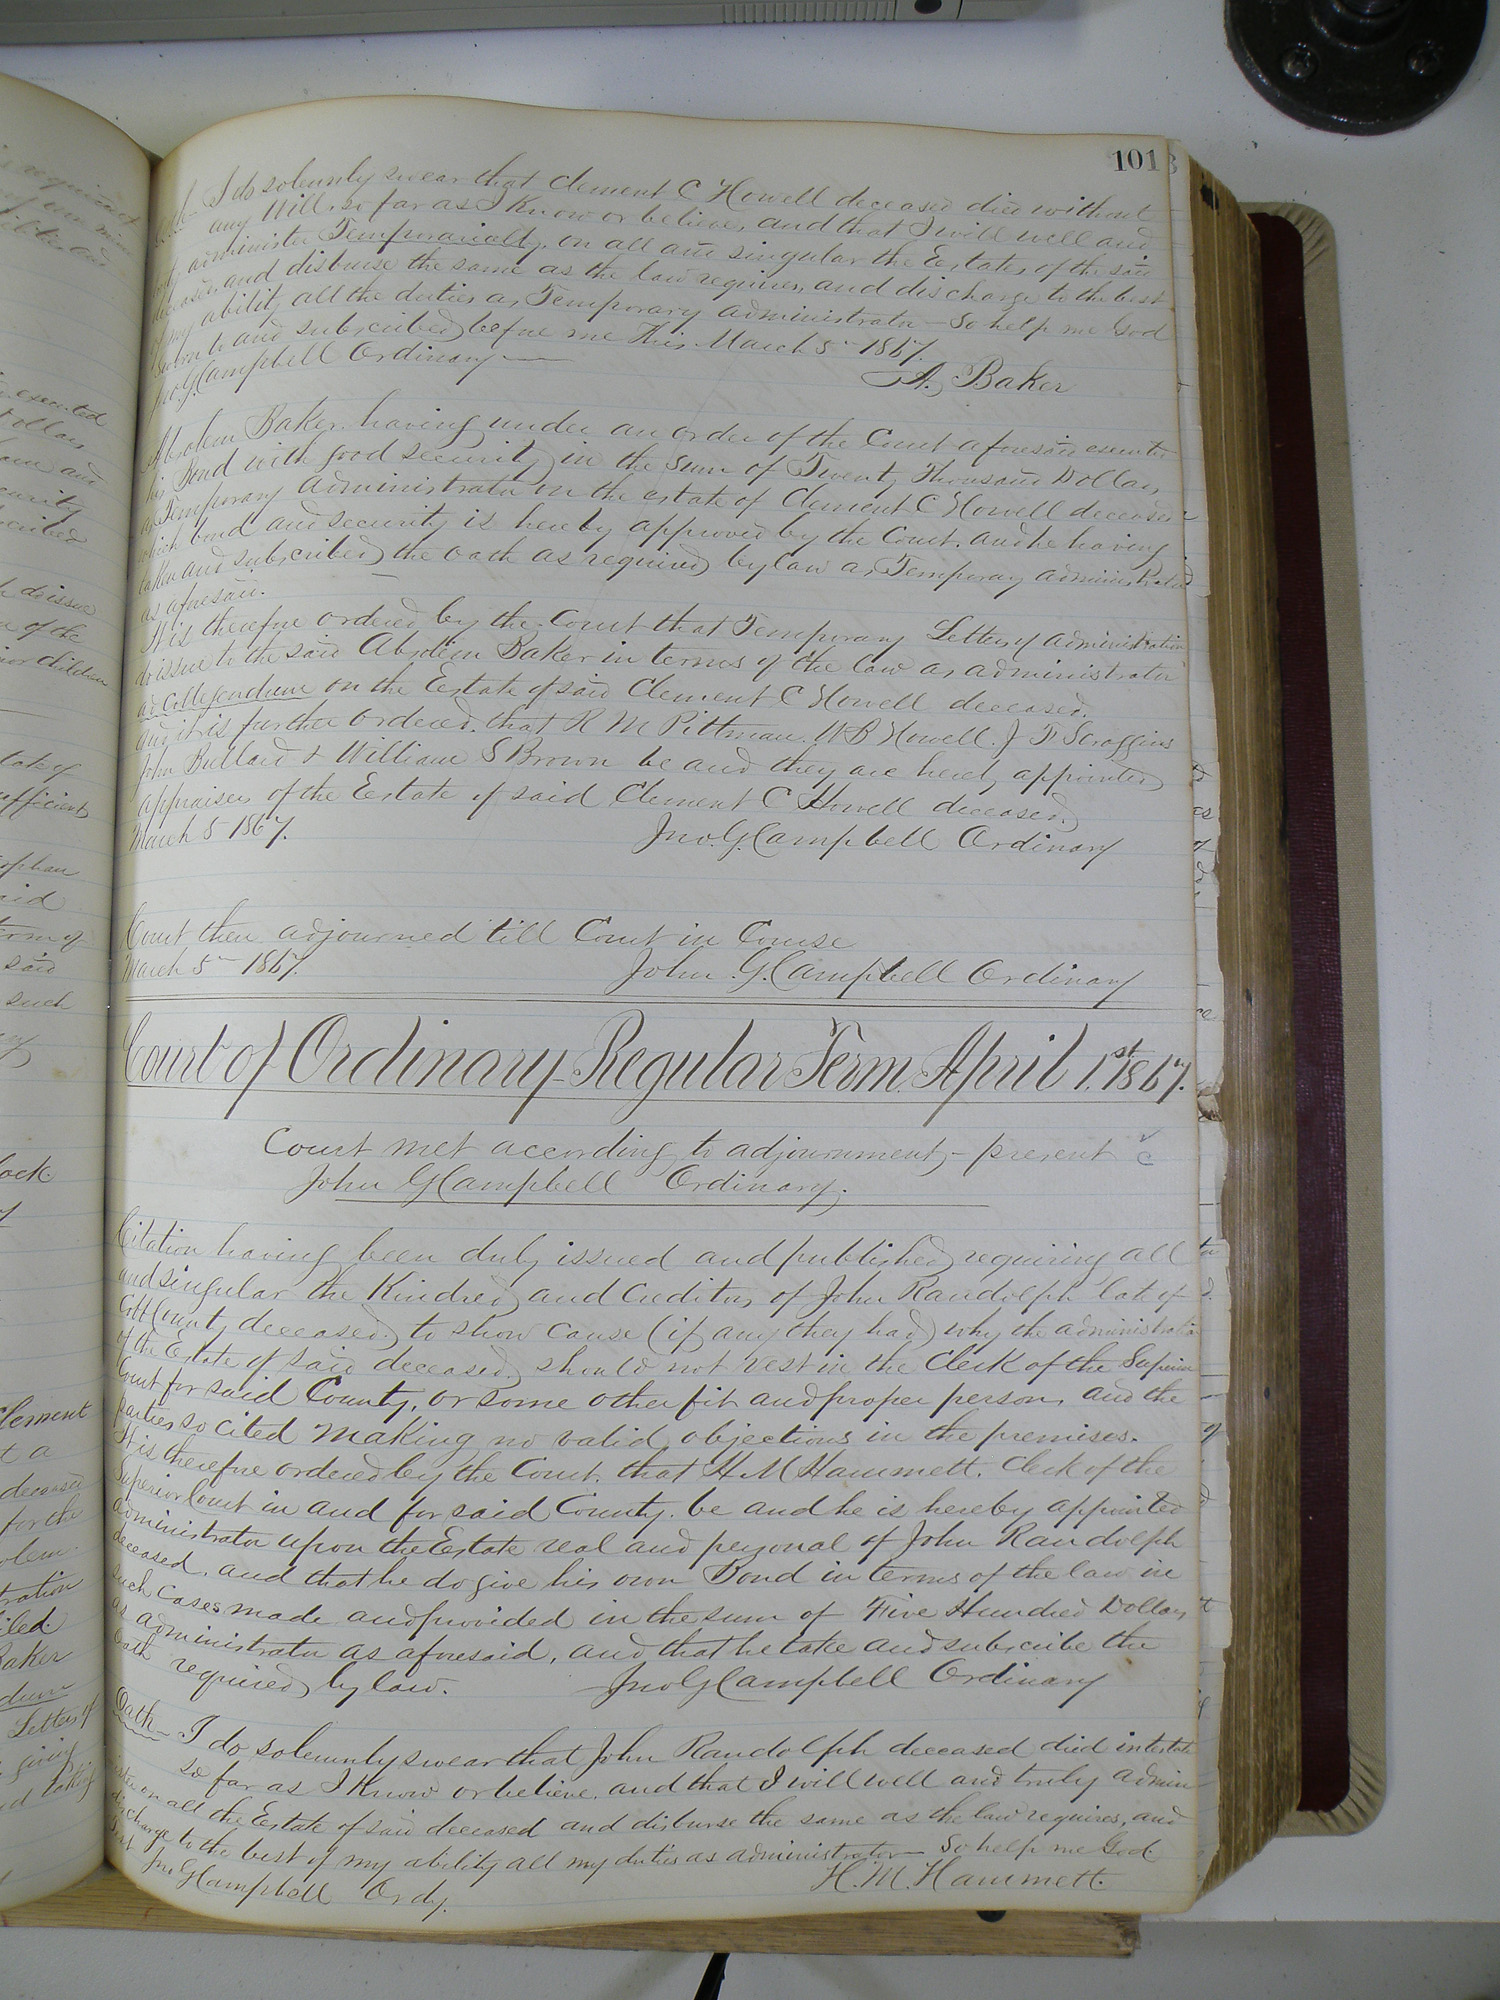 101
Oath I do solemnly swear that Clement C Howell deceased died without
any Will, so far as I know or believe, and that I will well and
truly administer Temporarially, on all and singular the Estate, of the said
deceased, and disburse the same as the law requires, and discharge to the best
of my ability all the duties as Temporary administrator - So help me God
Sworn to and subscribed before me this March 5th 1867.
Jno. G. Campbell Ordinary
A. Baker
Absolem Baker having under an order of the Court aforesaid executed
his Bond with good security in the sum of Twenty Thousand Dollars
as Temporary Administrator on the estate of Clement C Howell deceased
which bond and security is hereby approved by the Court. and he having
taken and subscribed the oath as required by law as Temporary administrator
as aforesaid.
It is therefore ordered by the Court that Temporary Letters of administration
do issue to the said Absolem Baker in terms of the law as administrator
ad Collegendum on the Estate of said Clement C Howell deceased.
and it is further ordered. that R M Pittman. W B Howell. J F Scroggins
John Bullard & William S Brown be and they are hereby appointed
appraisers of the Estate of said Clement C Howell deceased.
March 5 1867.
Jno. G. Campbell Ordinary
Court then adjourned till Court in Course
March 5th 1867.
John. G. Campbell Ordinary
Court of Ordinary Regular Term April 1st 1867.
Court met according to adjournment, - present
John G Campbell Ordinary.
Citation having been duly issued and published requiring all
and singular the Kindred and Creditors of John Randolph late of
Cobb County deceased. to show cause (if any they had) why the administration
of the Estate of said deceased. should not vest in the Clerk of the Superior
Court for said County, or some other fit and proper person, and the
parties so cited making no valid objections in the premises.
It is therefore ordered by the Court. that H. M Hammett. Clerk of the
Superior Court in and for said County. be and he is hereby appointed
administrator upon the Estate real and personal of John Randolph
deceased. and that he do give his own Bond in terms of the law in
such cases made and provided in the sum of Five Hundred Dollars
as administrator as aforesaid, and that he take and subscribe the
Oath required by law.
Jno G Campbell Ordinary
Oath - I do solemnly swear that John Randolph deceased died intestate
so far as I know or believe, and that I will well and truly admin
ister on all the Estate of said deceased and disburse the same as the law requires, and
discharge to the best of my ability all my duties as administrator - So help me God
Jno G Campbell Ordy.
H. M. Hammett.